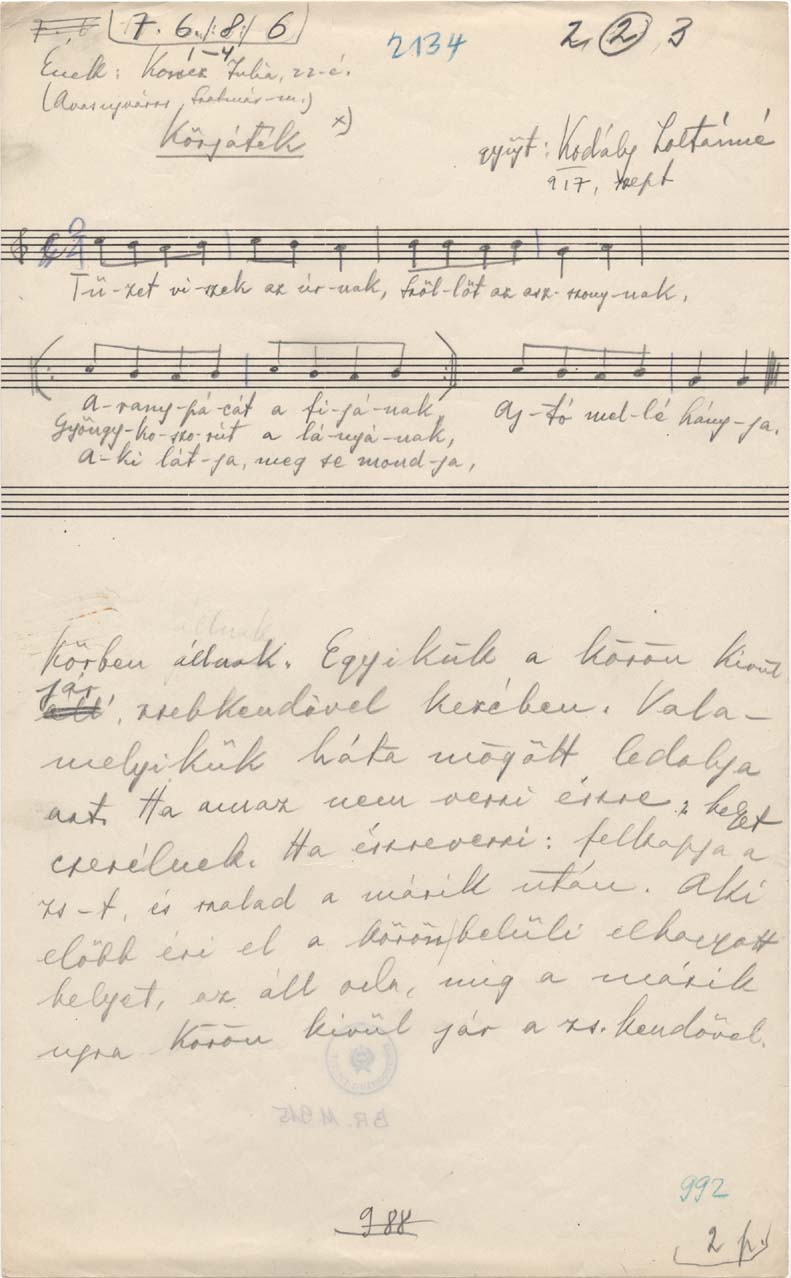 7. 6. /:8:/ 6
1–4
2134
2, 2, 3
Ének: Julia, 22 é.
(Avasujváros, Szatmár-m.)
Körjáték x)
gyüjt: Kodály Zoltánné
917, szept
2/4
Tü-zet vi-szek az úr-nak, Szöl-löt az asz-szony-nak,
A-rany-pá-cát a fi-já-nak, Aj-tó mel-lé hány-ja.
Gyöngy-ko-szo-rút a lá-nyá-nak,
A-ki lát-ja, meg se mond-ja,
Körben állnak. Egyikük a körön kivül
jár
áll, zsebkendövel kezében. Vala-
melyikük háta mögött ledobja
azt. Ha amaz nem veszi észre, helyet
cserélnek. Ha észreveszi: felkapja a
zs-t, és szalad a másik után. Aki
elöbb éri el a körön belüli elhagyott
helyet, az áll oda, mig a másik
ujra körön kivül jár a zs.kendövel.
BR. M 945
992
988
2 p.